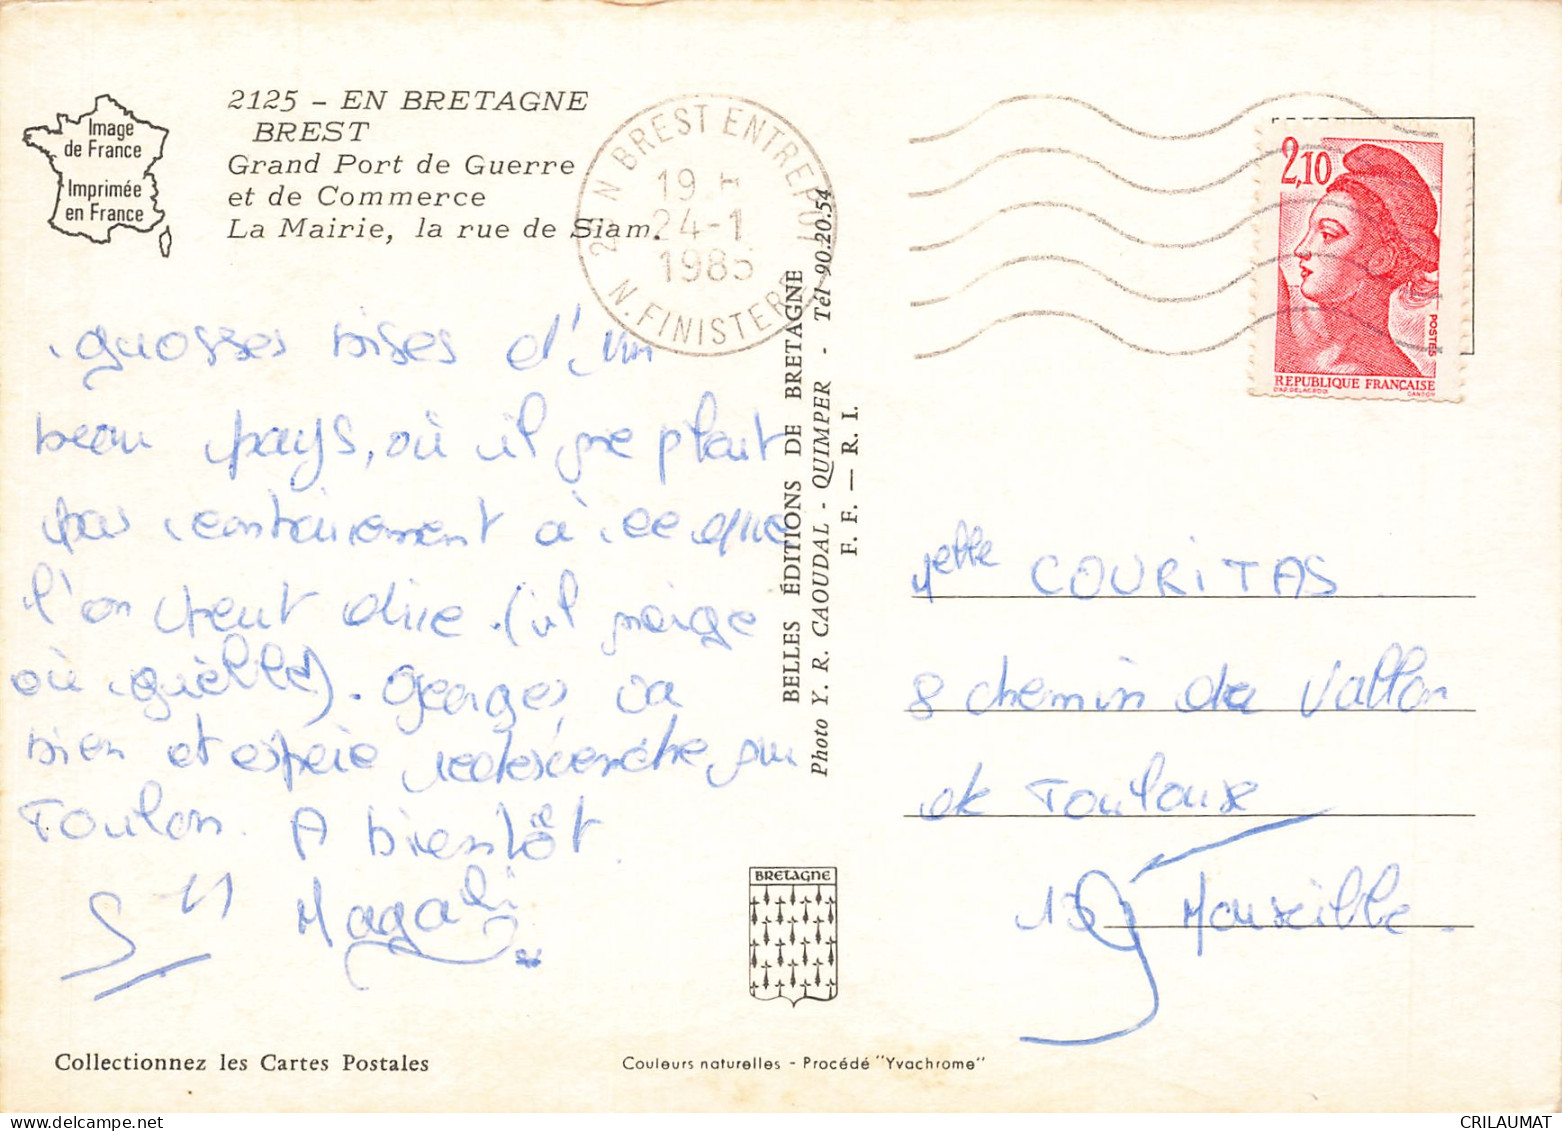 2125 - EN BRETAGNE
BREST
Grand Port de Guerre
et de Commerce
La Mairie, la rue de Siam.
Image
de France
Imprimée
en France
BREST ENTREPOT
19 H
24-1
1985
N. FINISTERE
2,10
POSTES
REPUBLIQUE FRANÇAISE
D'AP. DELACROIX
GANDON
grosses bises d'un
beau pays, où il ne pleut
pas contrairement à ce que
l'on peut dire (il neige
où guèlle). Georges va
bien et espère redescendre sur
Toulon. A bientôt.
Magali
BELLES ÉDITIONS DE BRETAGNE
Photo Y. R. CAOUDAL - QUIMPER - Tél 90.20.54
F. F. — R. I.
COURITAS
8 chemin de Vallon
de Toulouse
Marseille.
BRETAGNE
Collectionnez les Cartes Postales
Couleurs naturelles - Procédé "Yvachrome"
CRILAUMAT